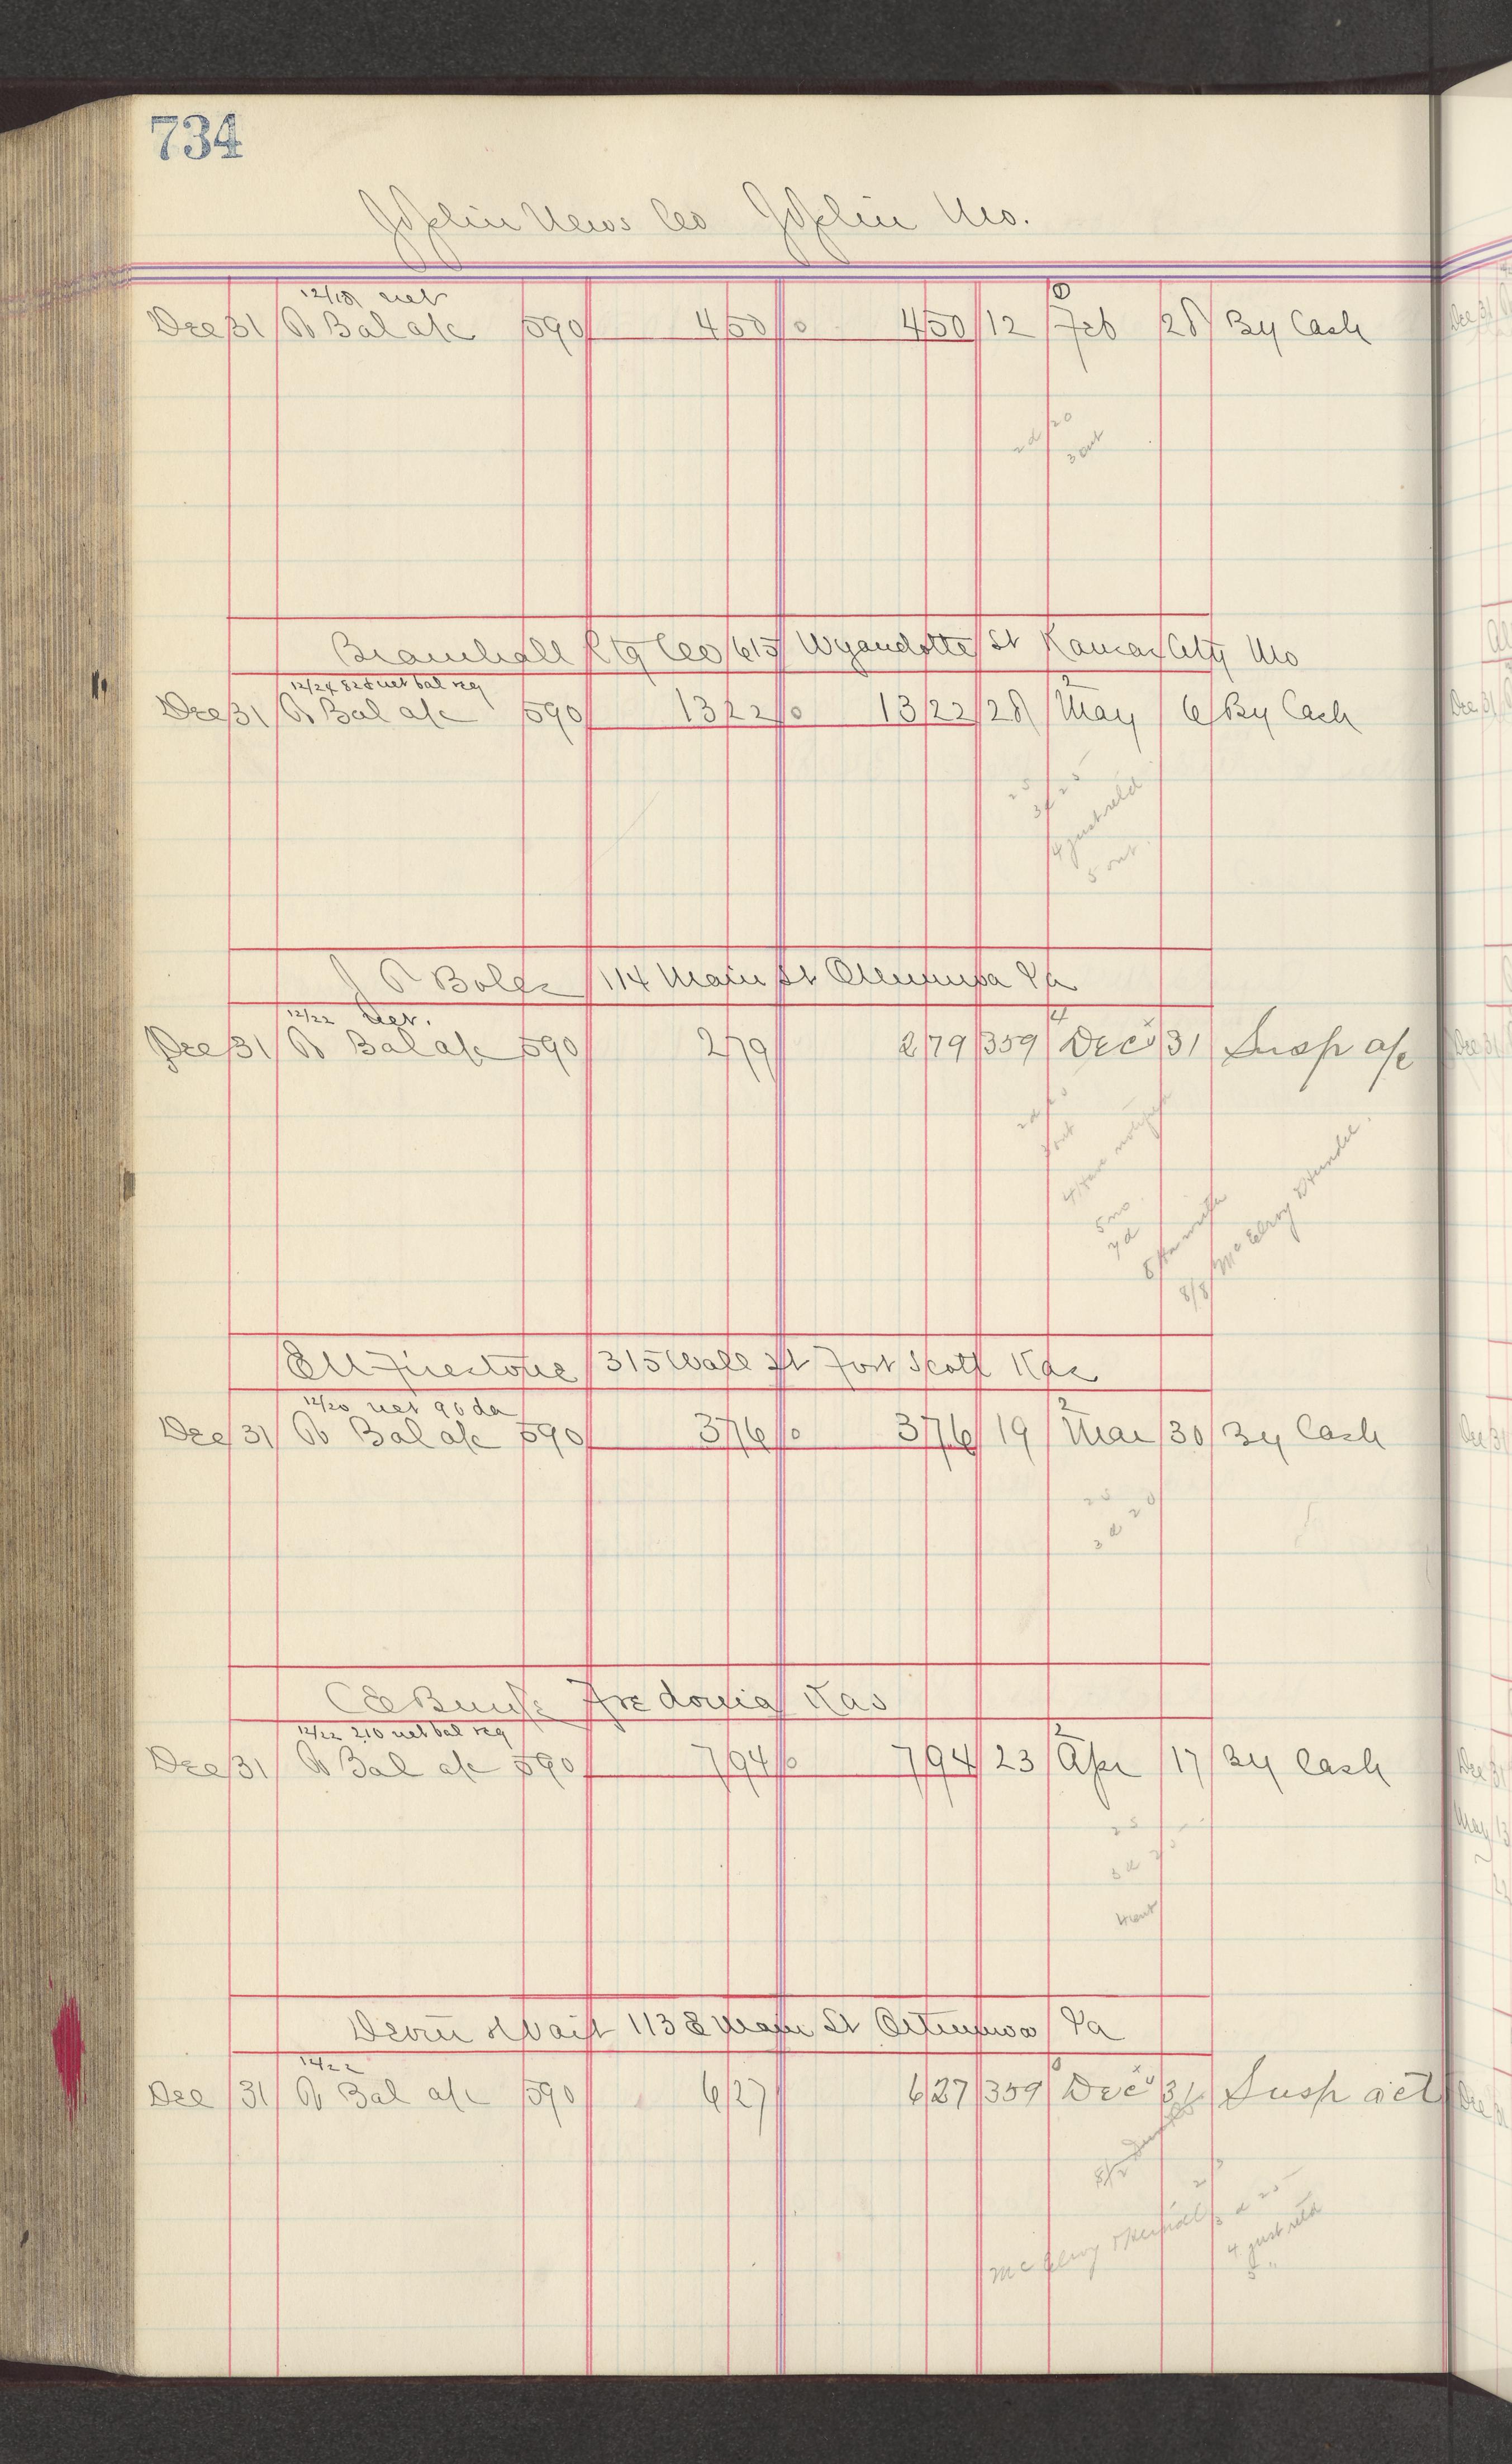 734
Joplin News Co Joplin Mo.
12/18 net
Dec 31 To Bal a/c 590 4 50 0 4 50 12 Feb 28 By Cash
2d 20
3 out
Bramhall Ptg Co 615 Wyandotte St Kansas City Mo
12/24 828 net bal reg 2
Dec 31 To Bal a/c 590 13 22 0 13 22 28 May 6 By Cash
25
3d 25
4 just retd
5 out
J P Boles 114 Main St Ottumwa Ia
12/22 Net. 4
Dec 31 To Bal a/c 590 2 79 2 79 359 Dec 31 Susp a/c
2d 20
3 out
4 Have
5 no
7d
8 Ha write
8/8 McElroy
E M Firestone 315 Wall St Fort Scott Kas
12/20 net 90 da 2
Dec 31 To Bal a/c 590 3 76 0 3 76 19 Mar 30 By Cash
25 20
3d
C E Fredonia Kas
12/22 210 net bal reg 2
Dec 31 To Bal a/c 590 7 94 0 7 94 23 Apr 17 By Cash
25
3d 25
4 out
113 E Main St Ottumwa Ia
12/22
Dec 31 To Bal a/c 590 6 27 6 27 359 Dec 31 Susp act
8/2
McElroy 3d 25
4 just retd
5 "